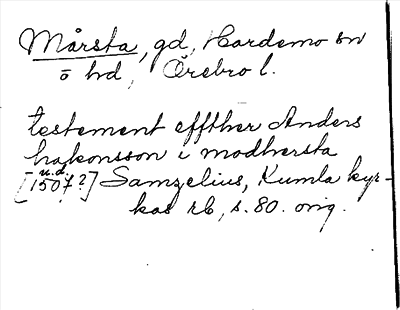 Mårsta, gd, Hardemo sn
ö hd, Örebro l.
testement effther Anders
hakonsson i modhersta
u.d.
[1507?] Samzelius, Kumla kyr-
kas rb, s. 80. orig.